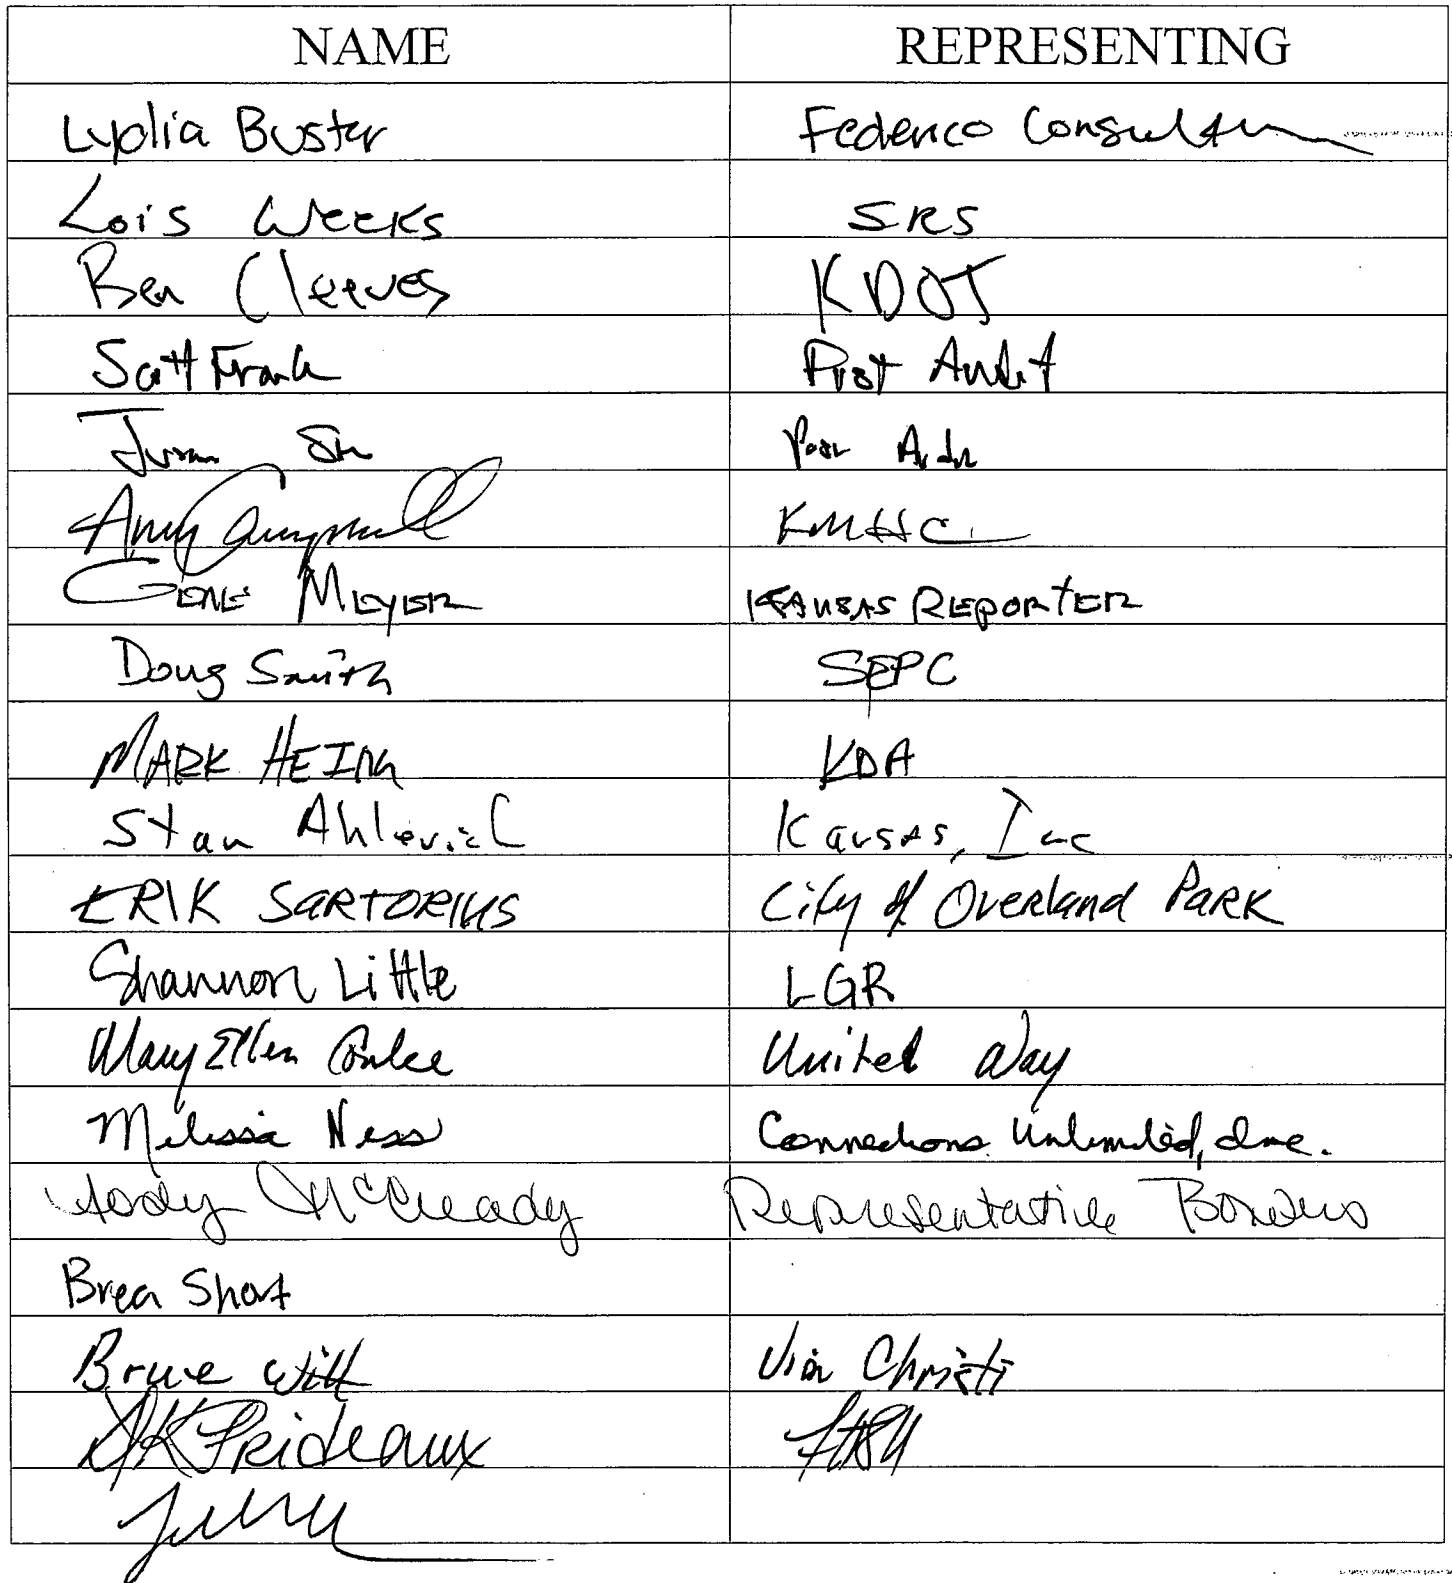 NAME REPRESENTING
Lydia Buster Federico Consulting
Lois Weeks SRS
Ben Cleeves KDOT
Scott Frank Post Audit
Post Audit
Amy Campbell KMHC
GENE MEYER KANSAS REPORTER
Doug Smith SEPC
MARK HEIM KDA
Stan Ahlerich Kansas, Inc
ERIK SARTORIUS City of Overland PARK
Shannon Little LGR
Mary Ellen Conlee United Way
Melissa Ness Connections Unlimited, Inc.
McCready Representative Bowers
Brea Short
Bruce Witt Via Christi
Prideaux